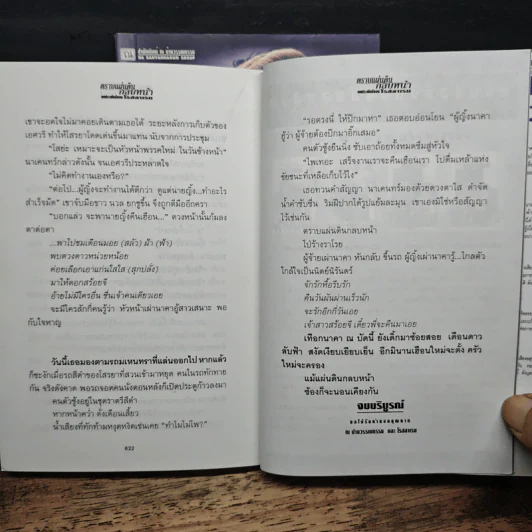 สำนักพิมพ์ ณ บ้านวรรณกรรม
Na BANVANNAGUM GROUP
ตราบแผ่นดิน
กลบหน้า
เขาจะอดใจไม่มาคอยเดินตามเธอได้ ระยะหลังการเก็บตัวของ
เอศวรี ทำให้ไรยาโดดเด่นขึ้นมาแทน นับจากการประชุม
"ไสย่ะ เหมาะจะเป็นหัวหน้าพรรคใหม่ ในวันข้างหน้า"
นาเคนทร์กล่าวดังนั้น จนเอศวรีประหลาดใจ
"ไม่คิดทำงานเองหรือ?"
"ต่อไป...ผู้หญิงจะทำงานได้ดีกว่า ดูแต่นายญิ้ง...ทำอะไร
สำเร็จมัด" เขาจับมือขาว นวล ยกชูขึ้น จึงถูกตีมืออีกครา
"บอกแล้ว จะพานายญิ้งคืนเฮือน..." ดวงหน้านั้นก้มลง
ตาต่อตา
...พาไปชมเดือนมอย (สลัว) ม้า (ฟ้า)
พบดวงดาวหน่วยหน้อย
ค่อยเลือกเอาแก่นใสใส (สุกปลั่ง)
มาให้ดอกสร้อยจี
อ้ายไม่มีใครอื่น ชื่นเจ้าคนเดียวเอย
จะมีใครสักกี่คนรู้ว่า หัวหน้าเผ่านาคาผู้สาวเสนาะ พอ
กับใจหาญ
วันนี้เธอมองตามรถมเหนทราที่แล่นออกไป หากแล้ว
ก็ชะงักเมื่อรถสีดำของไรยาที่สวนเข้ามาหยุด คนในรถทักทาย
กัน จริงดังคาด พอรถจอดคนนั่งตอนหลังก็เปิดประตูก้าวลงมา
คนตัวสูงอยู่ในชุดราตรีสีดำ
หากหน้าคว่ำ ดั่งเดือนเสี้ยว
น้ำเสียงที่ทักห้ามหงุดหงิดเช่นเคย "ทำไมไม่โพ่?"
632
ตราบแผ่นดิน
กลบหน้า
"รอตรงนี้ ให้ปีกมาหา" เธอตอบอ่อนโยน "ผู้ญิ้งนาคา
ฮู้ว่า ผู้จ้ายต้องปีกมาอีกเสมอ"
คนตัวซูงยืนนิ่ง ซับเอาถ้อยทั้งหมดซึมสู่หัวใจ
"ไพเทอะ เสร็จงานเราจะคืนเฮือนเรา ไปดื่มเหล้าแห่ง
ชัยชนะที่เหลือเก็บไว้ไง"
เธอทวนคำสัญญา นาเคนทร์มองด้วยดวงตาใส ดำจัด
น้ำคำซับซึ้ง ริมฝีปากได้รูปแย้มละมุน เขาเองมิใช่หรือสัญญา
ไว้เช่นกัน
ตราบแผ่นดินกลบหน้า
ไปร้างราโรย
ผู้จ้ายเผ่านาคา หันกลับ ขึ้นรถ ผู้ญิ้งเผ่านาคารู้...ไกลตัว
ใกล้ใจเป็นนิตย์นิรันดร์
จักรักหื้อรับรัก
คืนวันผันผ่านเร็วนัก
จะรักอีกกี่วันเอย
เจ้าสาวสร้อยจี เดี๋ยวพี่จะคืนมาเอย
เทือกนาคา ณ บัดนี้ ยังเด็กมาช้อยสอย เดือนดาว
ลับฟ้า สงัดเงียบเยียบเย็น อีกมินานเฮือนใหม่จะตั้ง ครัว
ใหม่จะครอง
แม้แผ่นดินกลบหน้า
ข้องก็จะนอนเคียงกัน
จบบริบูรณ์
ณ บ้านวรรณกรรม และ โรสลาเรน